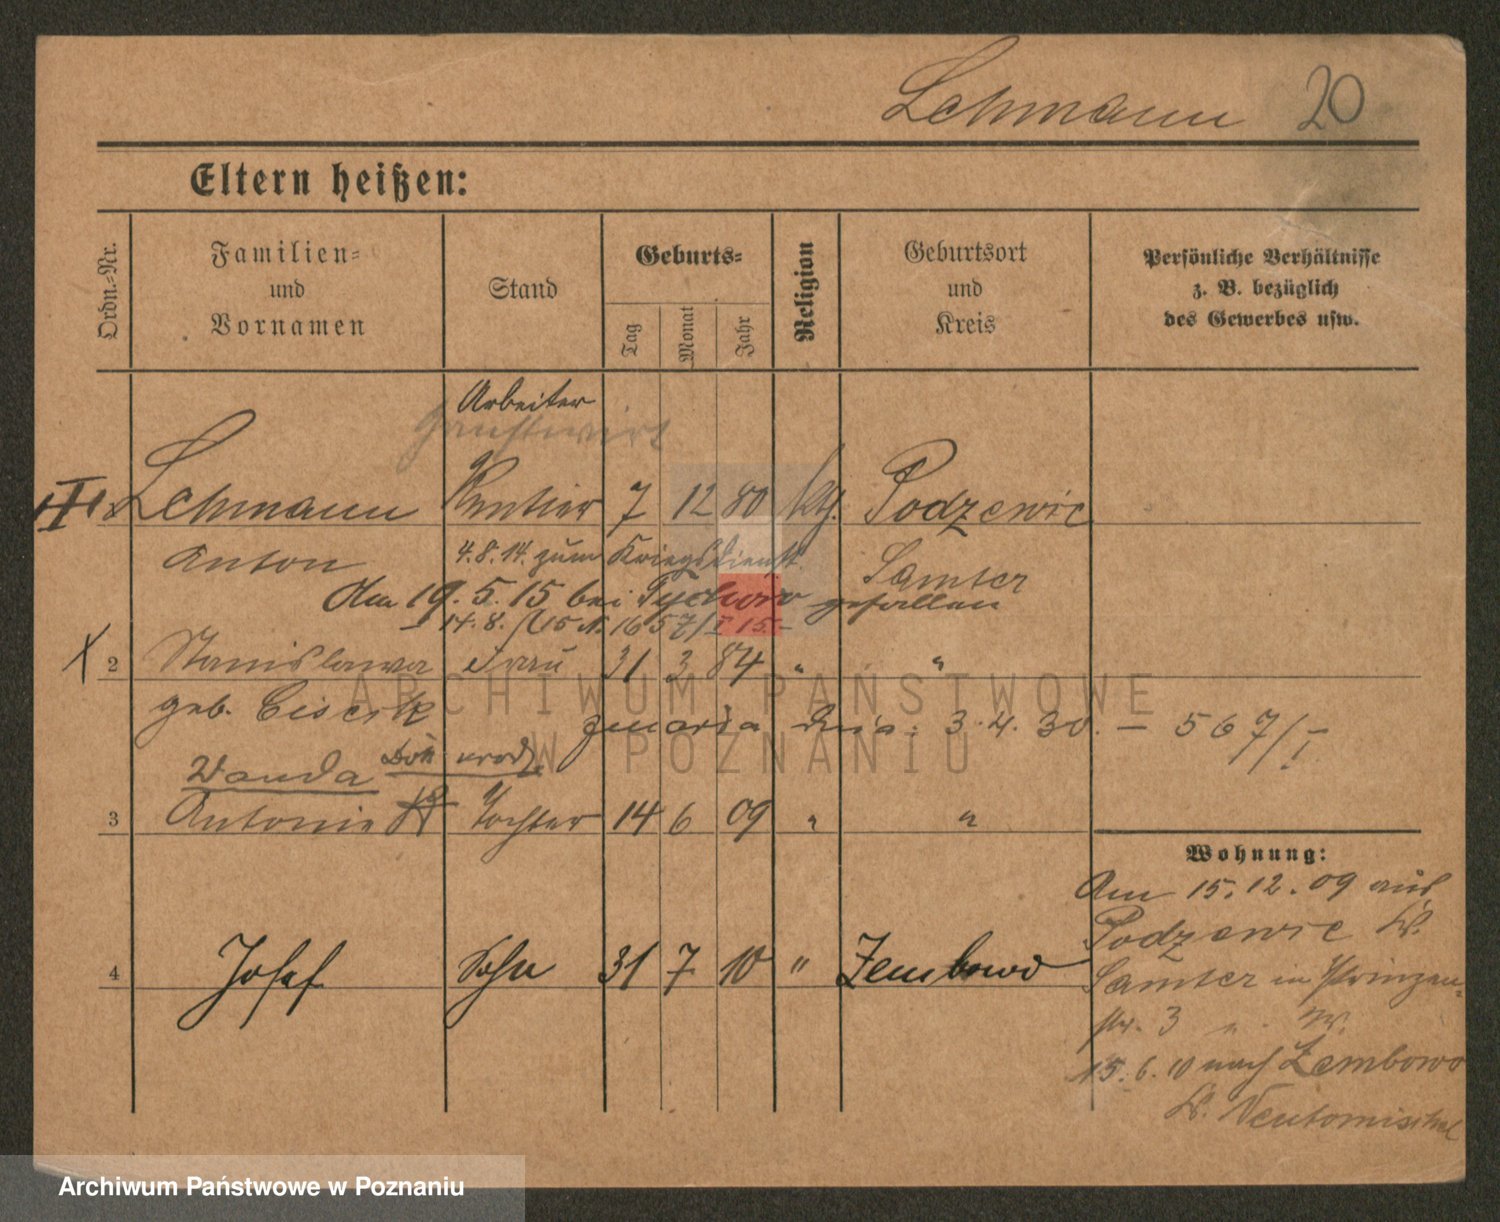 Lehmann 20
Eltern heißen:
Ordn.-Nr.
Familien-
und
Vornamen
Stand
Geburts-
Tag
Monat
Jahr
Religion
Geburtsort
und
Kreis
Persönliche Verhältnisse
z. B. bezüglich
des Gewerbes usw.
Arbeiter
Lehmann Rentier 7 12 80 kth. Podzewic
Anton 4.8.14. zum Kriegsdienst. Samter
Am 19.5.15 bei gefallen
2 Stanislawa Frau 31 3 84 " "
geb.
zmarła dnia: 3.4.30. – 567/I.
Wanda urodz.
3 Antonie Tochter 14 6 09 " "
4 Josef Sohn 31 7 10 " Zembowo
Wohnung:
Am 15.12.09 aus
Podzewic Kr.
Samter in Prinzen-
str. 3
15.6.10 nach Zembowo
Kr. Neutomischel
ARCHIWUM PAŃSTWOWE
W POZNANIU
Archiwum Państwowe w Poznaniu